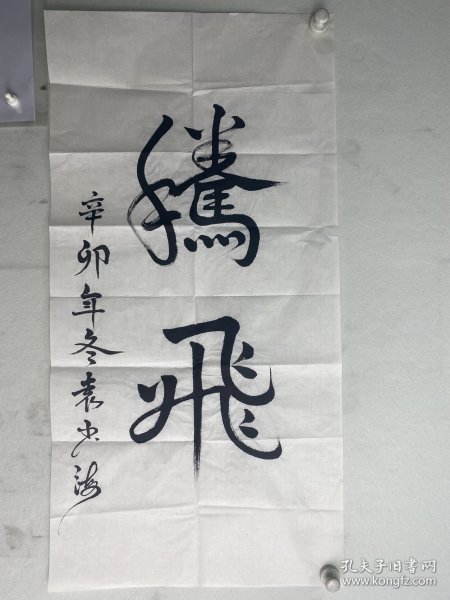 騰飛
辛卯年冬袁少海
孔夫子旧书网
www.kongfz.com